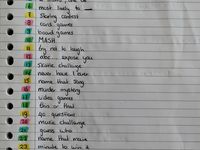 6 most likely to
7 staring contest
8 card games
9 board games
10 MASH
11 try not to laugh
12 abc... expose you
13 skate challenge
14 never have I ever
15 name that song
16 murder mystery
17 video games
18 this or that
19 20 questions
20 music challenge
21 guess who
22 name that movie
23 minute to win it